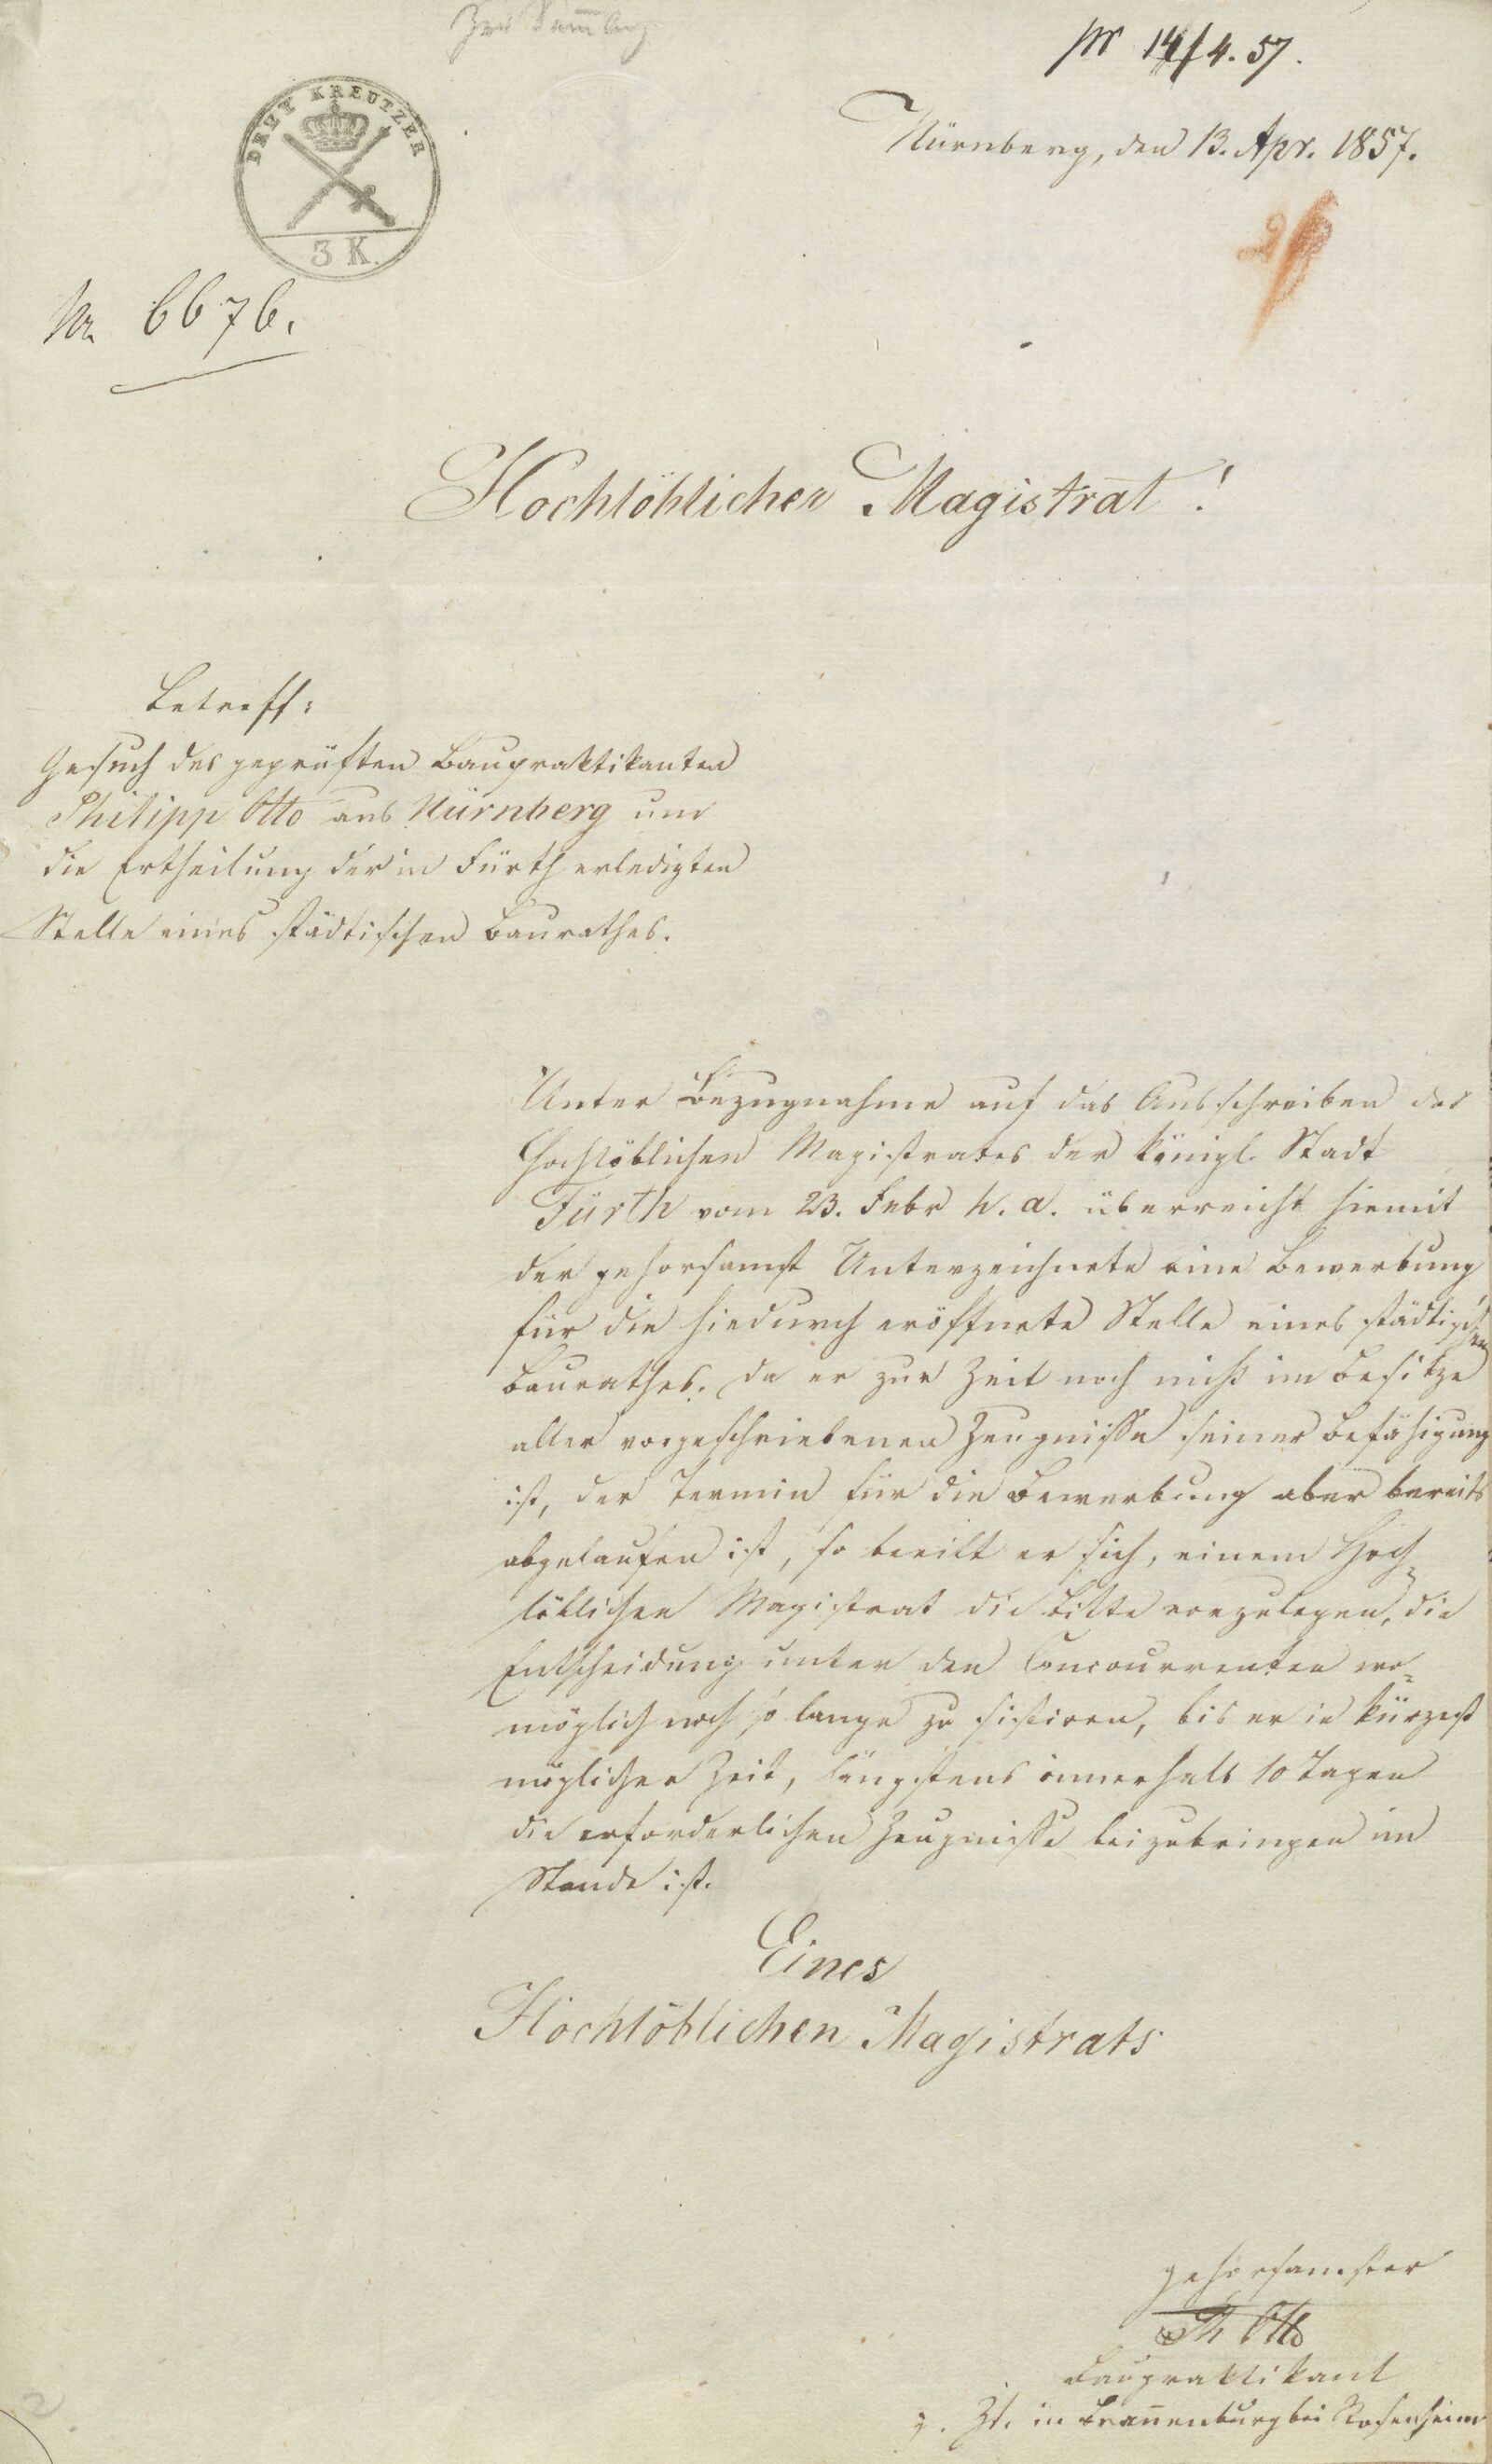 Zur Sammlung
pr 14/4. 57.
DREY KREUTZER
3 K.
Nürnberg, den 13. Apr. 1857.
Nr. 6676.
Hochlöblicher Magistrat!
Betreff:
Gesuch des geprüften Baupraktikanten
Philipp Otto aus Nürnberg um
die Ertheilung der in Fürth erledigten
Stelle eines städtischen Baurathes.
Unter Bezugnahme auf das Ausschreiben des
Hochlöblichen Magistrates der königl. Stadt
Fürth vom 23. Febr h. a. überreicht hiemit
der gehorsamst Unterzeichnete eine Bewerbung
für die hiedurch eröffnete Stelle eines städtischen
Baurathes. Da er zur Zeit noch nicht im Besitze
aller vorgeschriebenen Zeugnisse seiner Befähigung
ist, der Termin für die Bewerbung aber bereits
abgelaufen ist, so beeilt er sich, einem Hoch-
löblichen Magistrat die Bitte vorzulegen, die
Entscheidung unter den Concourrenten wo-
möglich noch so lange zu sistiren, bis er in kürzest
möglicher Zeit, längstens innerhalb 10 Tagen
die erforderlichen Zeugnisse beizubringen im
Stande ist.
Eines
Hochlöblichen Magistrats
gehorsamster
Ph Otto
Baupraktikant
z. Zt. in Brañenburg bei Rosenheim
2